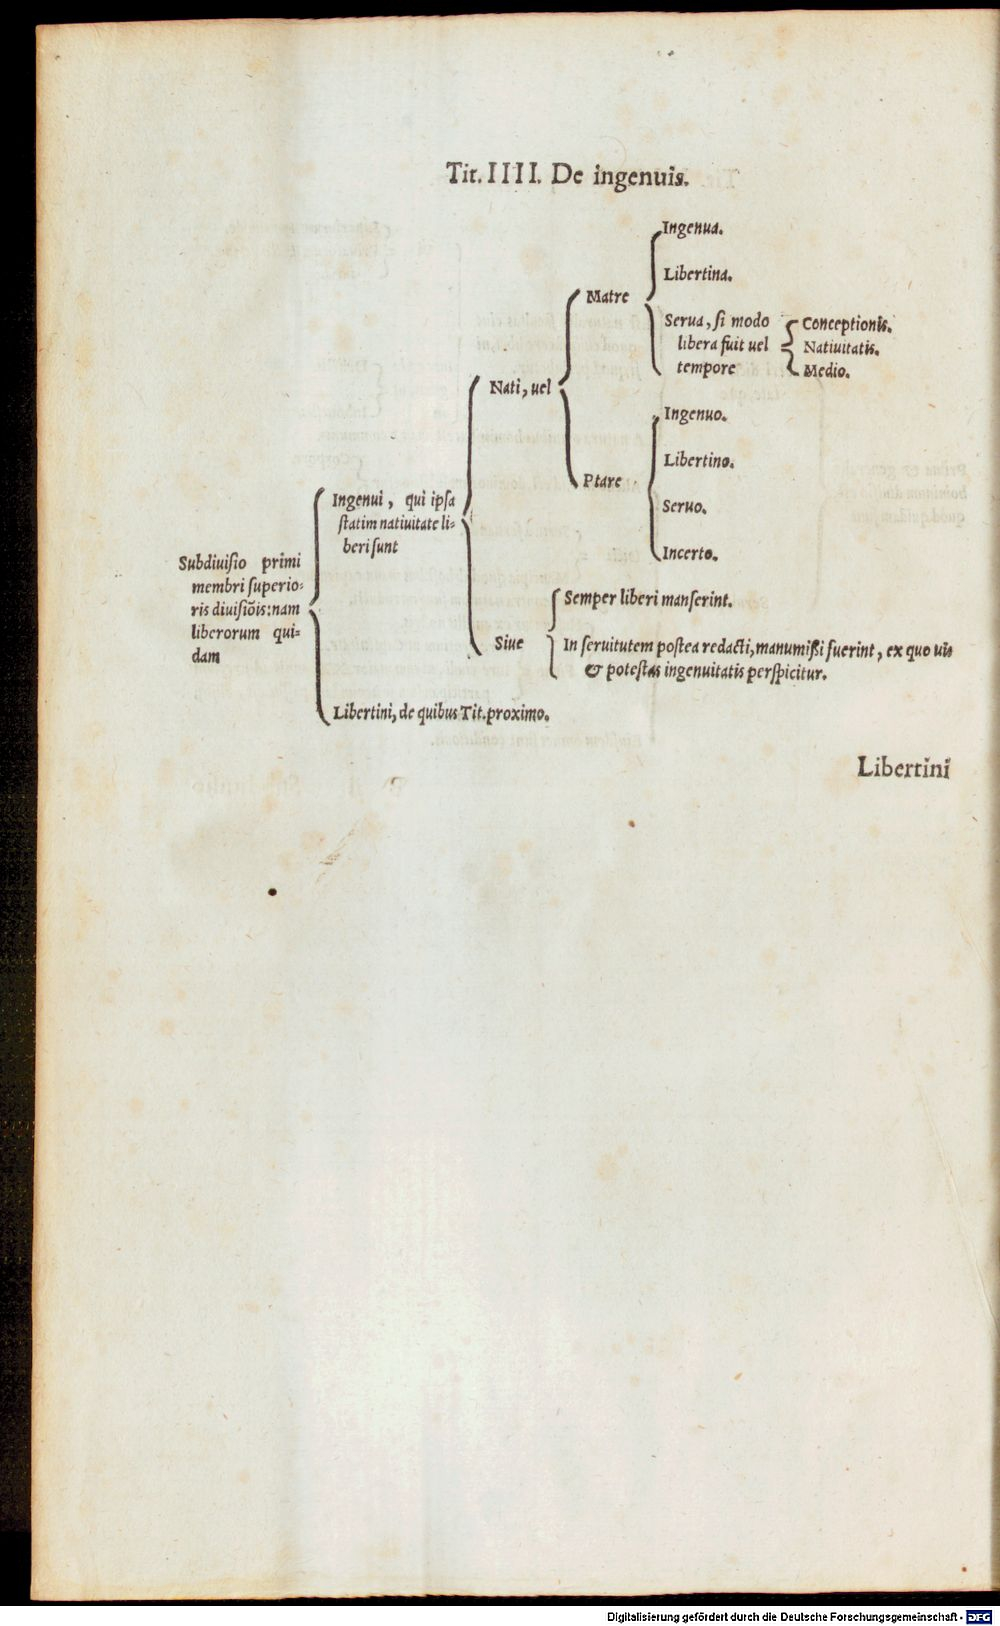 Tit. IIII. De ingenuis.
Ingenua.
Libertina.
Matre
Serua, si modo
libera fuit uel
tempore
Conceptionis.
Natiuitatis.
Medio.
Nati, uel
Ingenuo.
Libertino.
Ptare
Seruo.
Incerto.
Ingenui, qui ipsa
statim natiuitate li-
beri sunt
Subdiuisio primi
membri superio-
ris diuisiõis: nam
liberorum qui-
dam
Semper liberi manserint.
Siue
In seruitutem postea redacti, manumißi fuerint, ex quo uis
& potestas ingenuitatis perspicitur.
Libertini, de quibus Tit. proximo.
Libertini
Digitalisierung gefördert durch die Deutsche Forschungsgemeinschaft - DFG